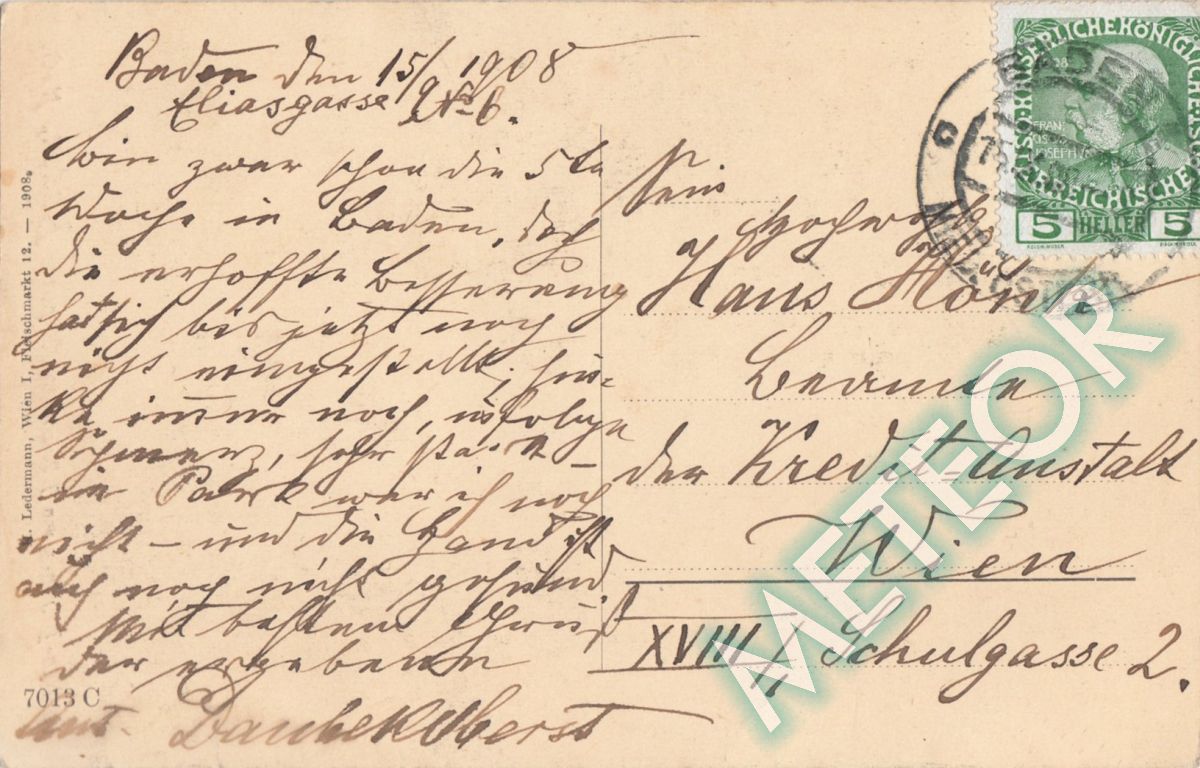 Baden den 15/9 1908
Eliasgasse No 6.
bin zwar schon die 5te
Woche in Baden, doch
die erhoffte Besserung
hat sich bis jetzt noch
nicht eingestellt, hin-
ke immer noch, infolge
Schmerz, sehr stark –
im Park war ich noch
nicht – und die Hand ist
auch noch nicht gesund.
Mit besten Gruß
der ergebene
Oberst
Hans
Beamte
der Kredit-Anstalt
Wien
XVIII/ Schulgasse 2.
7013 C
Ledermann, Wien I, Fleischmarkt 12. — 1908.
KAISERLICHE KÖNIGLICHE
ÖSTERREICHISCHE
5 HELLER 5
BADEN
METEOR